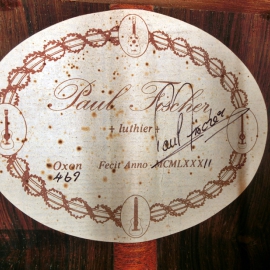 Paul Fischer
+ luthier +
Oxon Fecit Anno MCMLXXXII
469
Paul Fischer